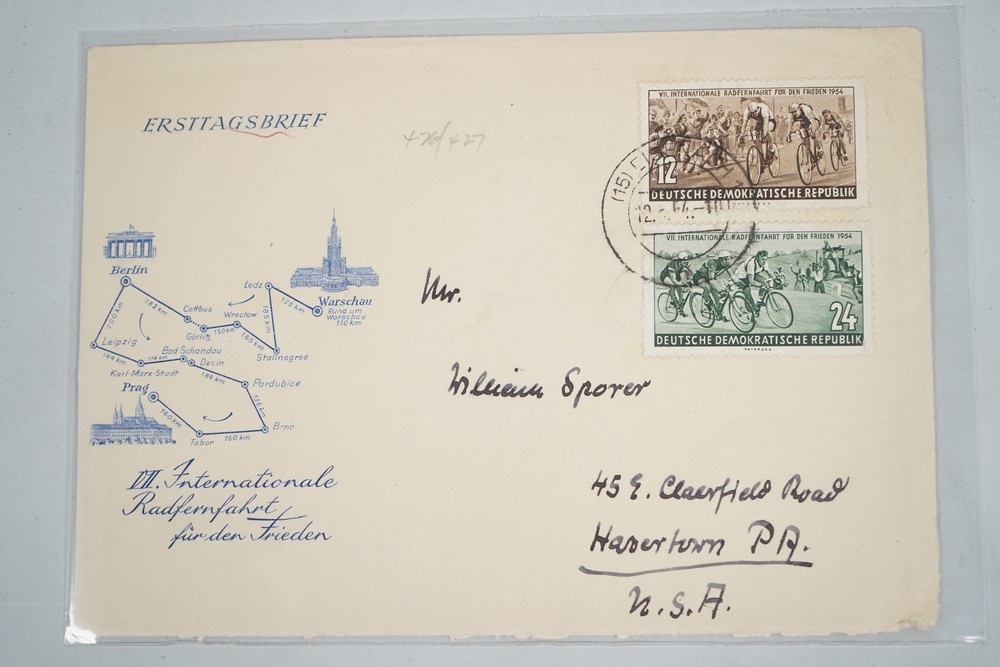 ERSTTAGSBRIEF
426/427
VII. INTERNATIONALE RADFERNFAHRT FÜR DEN FRIEDEN 1954
12
DEUTSCHE DEMOKRATISCHE REPUBLIK
(15)
12.
VII. INTERNATIONALE RADFERNFAHRT FÜR DEN FRIEDEN 1954
24
DEUTSCHE DEMOKRATISCHE REPUBLIK
Berlin
200 km
182 km
Cottbus
Görlitz
150 km
Wroclaw
180 km
Lodz
185 km
125 km
Warschau
Rund um
Warschau
110 km
Stalinogrod
Leipzig
Karl-Marx-Stadt
Bad Schandau
Decin
Pardubice
136 km
Brno
160 km
Tabor
160 km
Prag
VII. Internationale
Radfernfahrt
für den Frieden
Mr.
William Sporer
45 E. Claerfield Road
Havertown PA.
U.S.A.